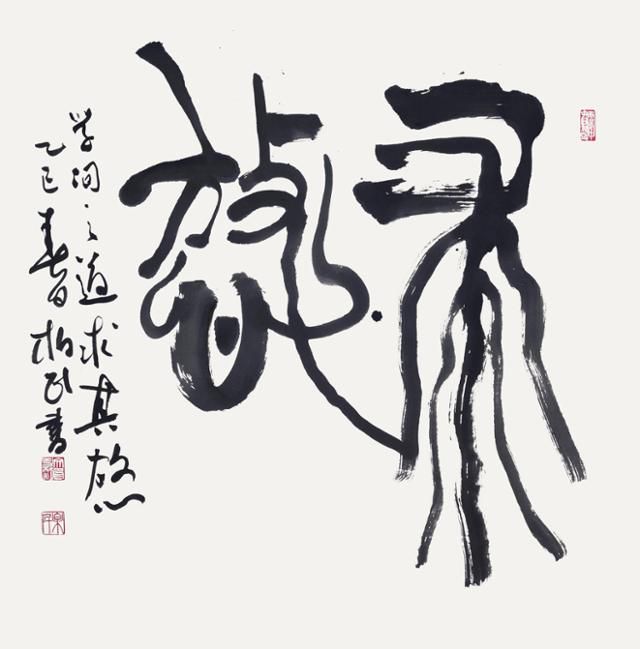 求
放心
学问之道求其放心
乙巳春日柏民书